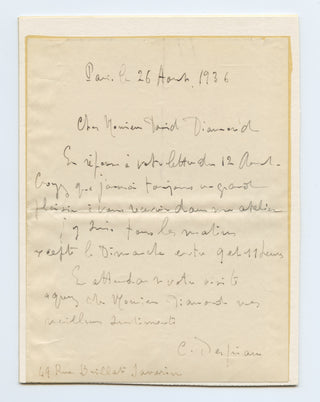 Paris le 26 Aout, 1936
Cher Monsieur David Diamond
En réponse à votre lettre du 12 Aout.
Croyez que j'aurai toujours un grand
plaisir à vous recevoir dans mon atelier
j'y suis tous les matins
excepté le Dimanche entre 9 et 11 heures
En attendant votre visite
agréez cher Monsieur Diamond mes
meilleurs sentiments
C. Despiau
49 Rue Brillat Savarin